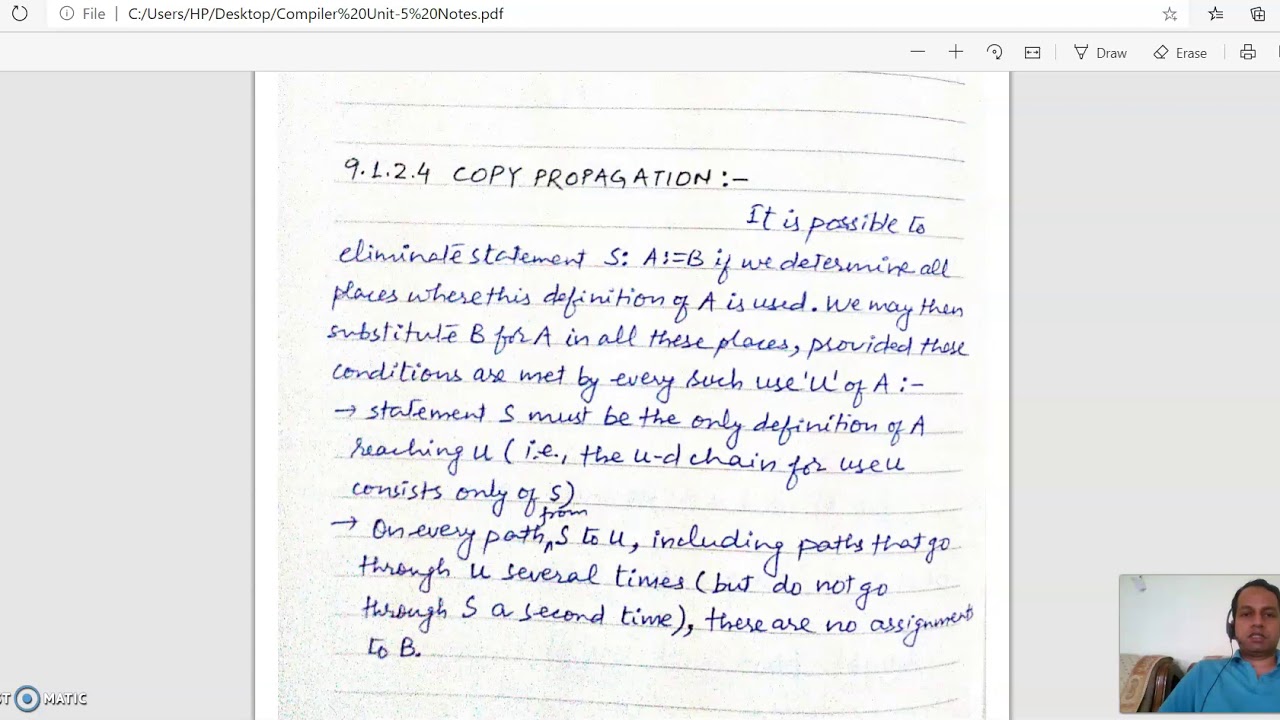 File | C:/Users/HP/Desktop/Compiler%20Unit-5%20Notes.pdf
Draw Erase
9.1.2.4 COPY PROPAGATION :-
It is possible to
eliminate statement S: A:=B if we determine all
places where this definition of A is used. We may then
substitute B for A in all these places, provided these
conditions are met by every such use 'U' of A :-
→ statement S must be the only definition of A
reaching U (i.e., the u-d chain for use u
consists only of S)
from
→ On every path, S to U, including paths that go
through U several times (but do not go
through S a second time), these are no assignment
to B.
ST MATIC